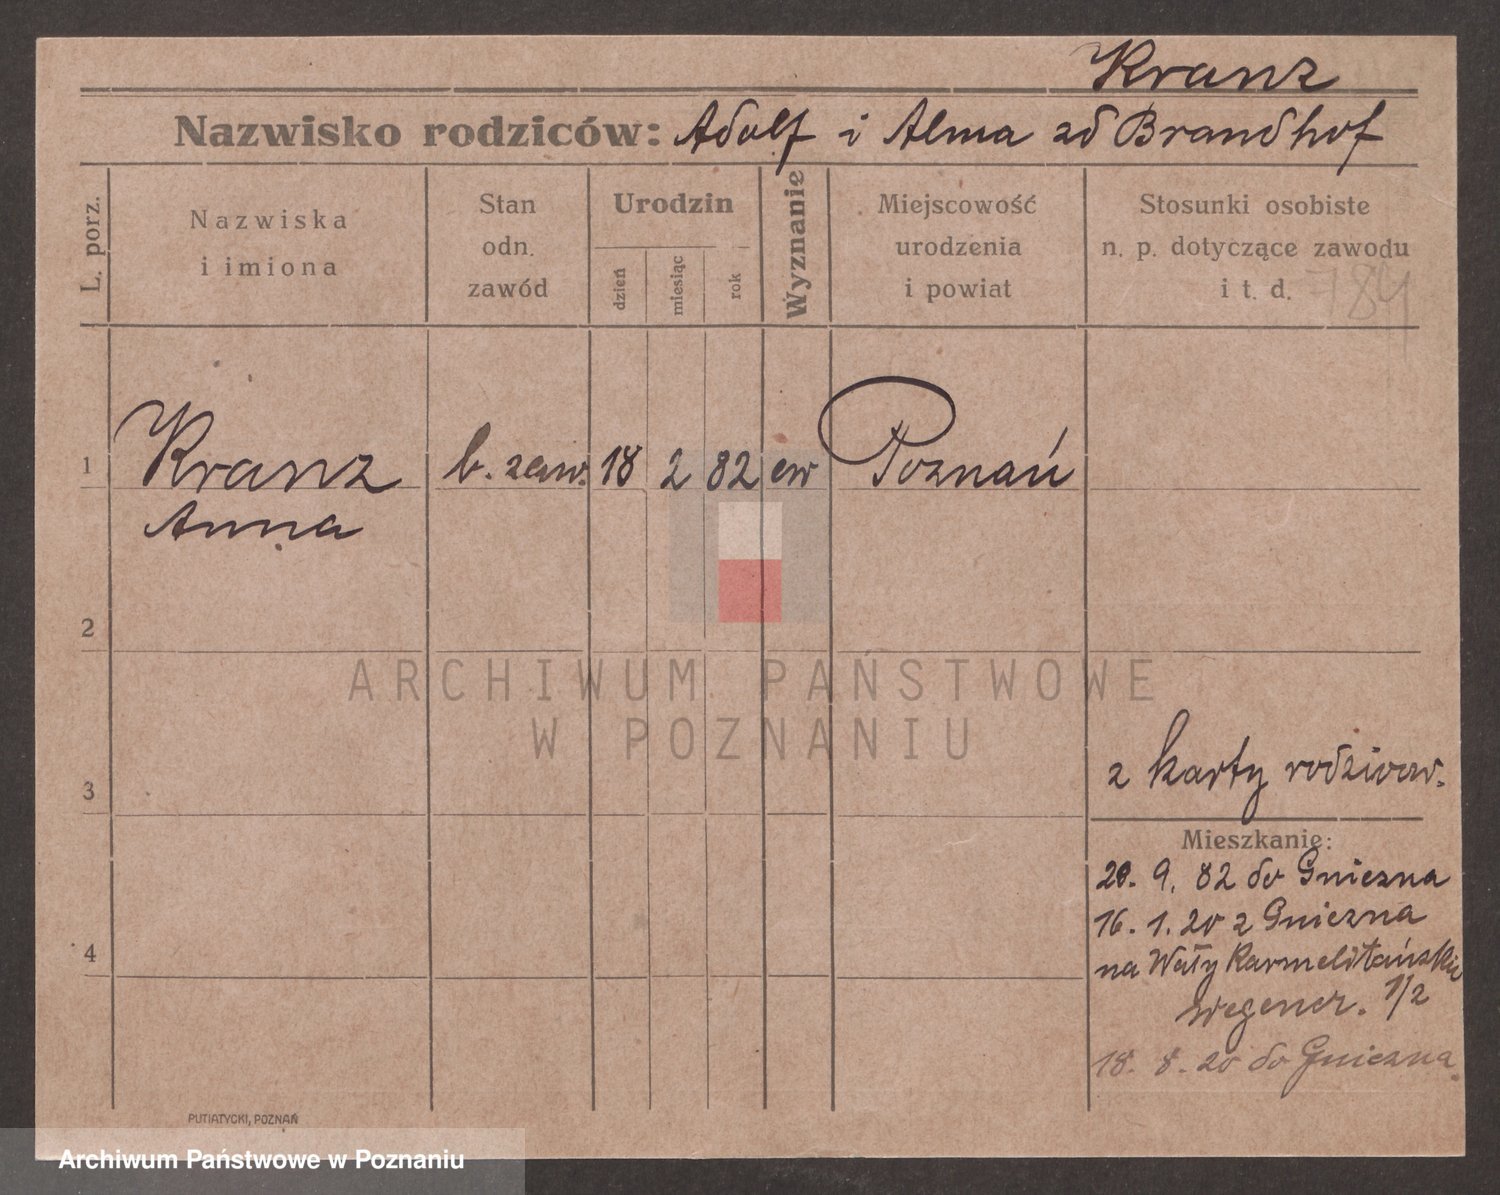 Kranz
Nazwisko rodziców: Adolf i Alma zd Brandhof
L. porz.
Nazwiska
i imiona
Stan
odn.
zawód
Urodzin
dzień
miesiąc
rok
Wyznanie
Miejscowość
urodzenia
i powiat
Stosunki osobiste
n. p. dotyczące zawodu
i t. d.
1 Kranz b. zaw. 18 2 82 ew Poznań
Anna
2
ARCHIWUM PAŃSTWOWE
W POZNANIU
3 z karty rodzicow.
Mieszkanie:
20. 9. 82 do Gniezna
16. 1. 20 z Gniezna
4 na Wały Karmelitańskie
Wegener. 1/2
18. 8. 20 do Gniezna.
PUTIATYCKI, POZNAŃ
Archiwum Państwowe w Poznaniu